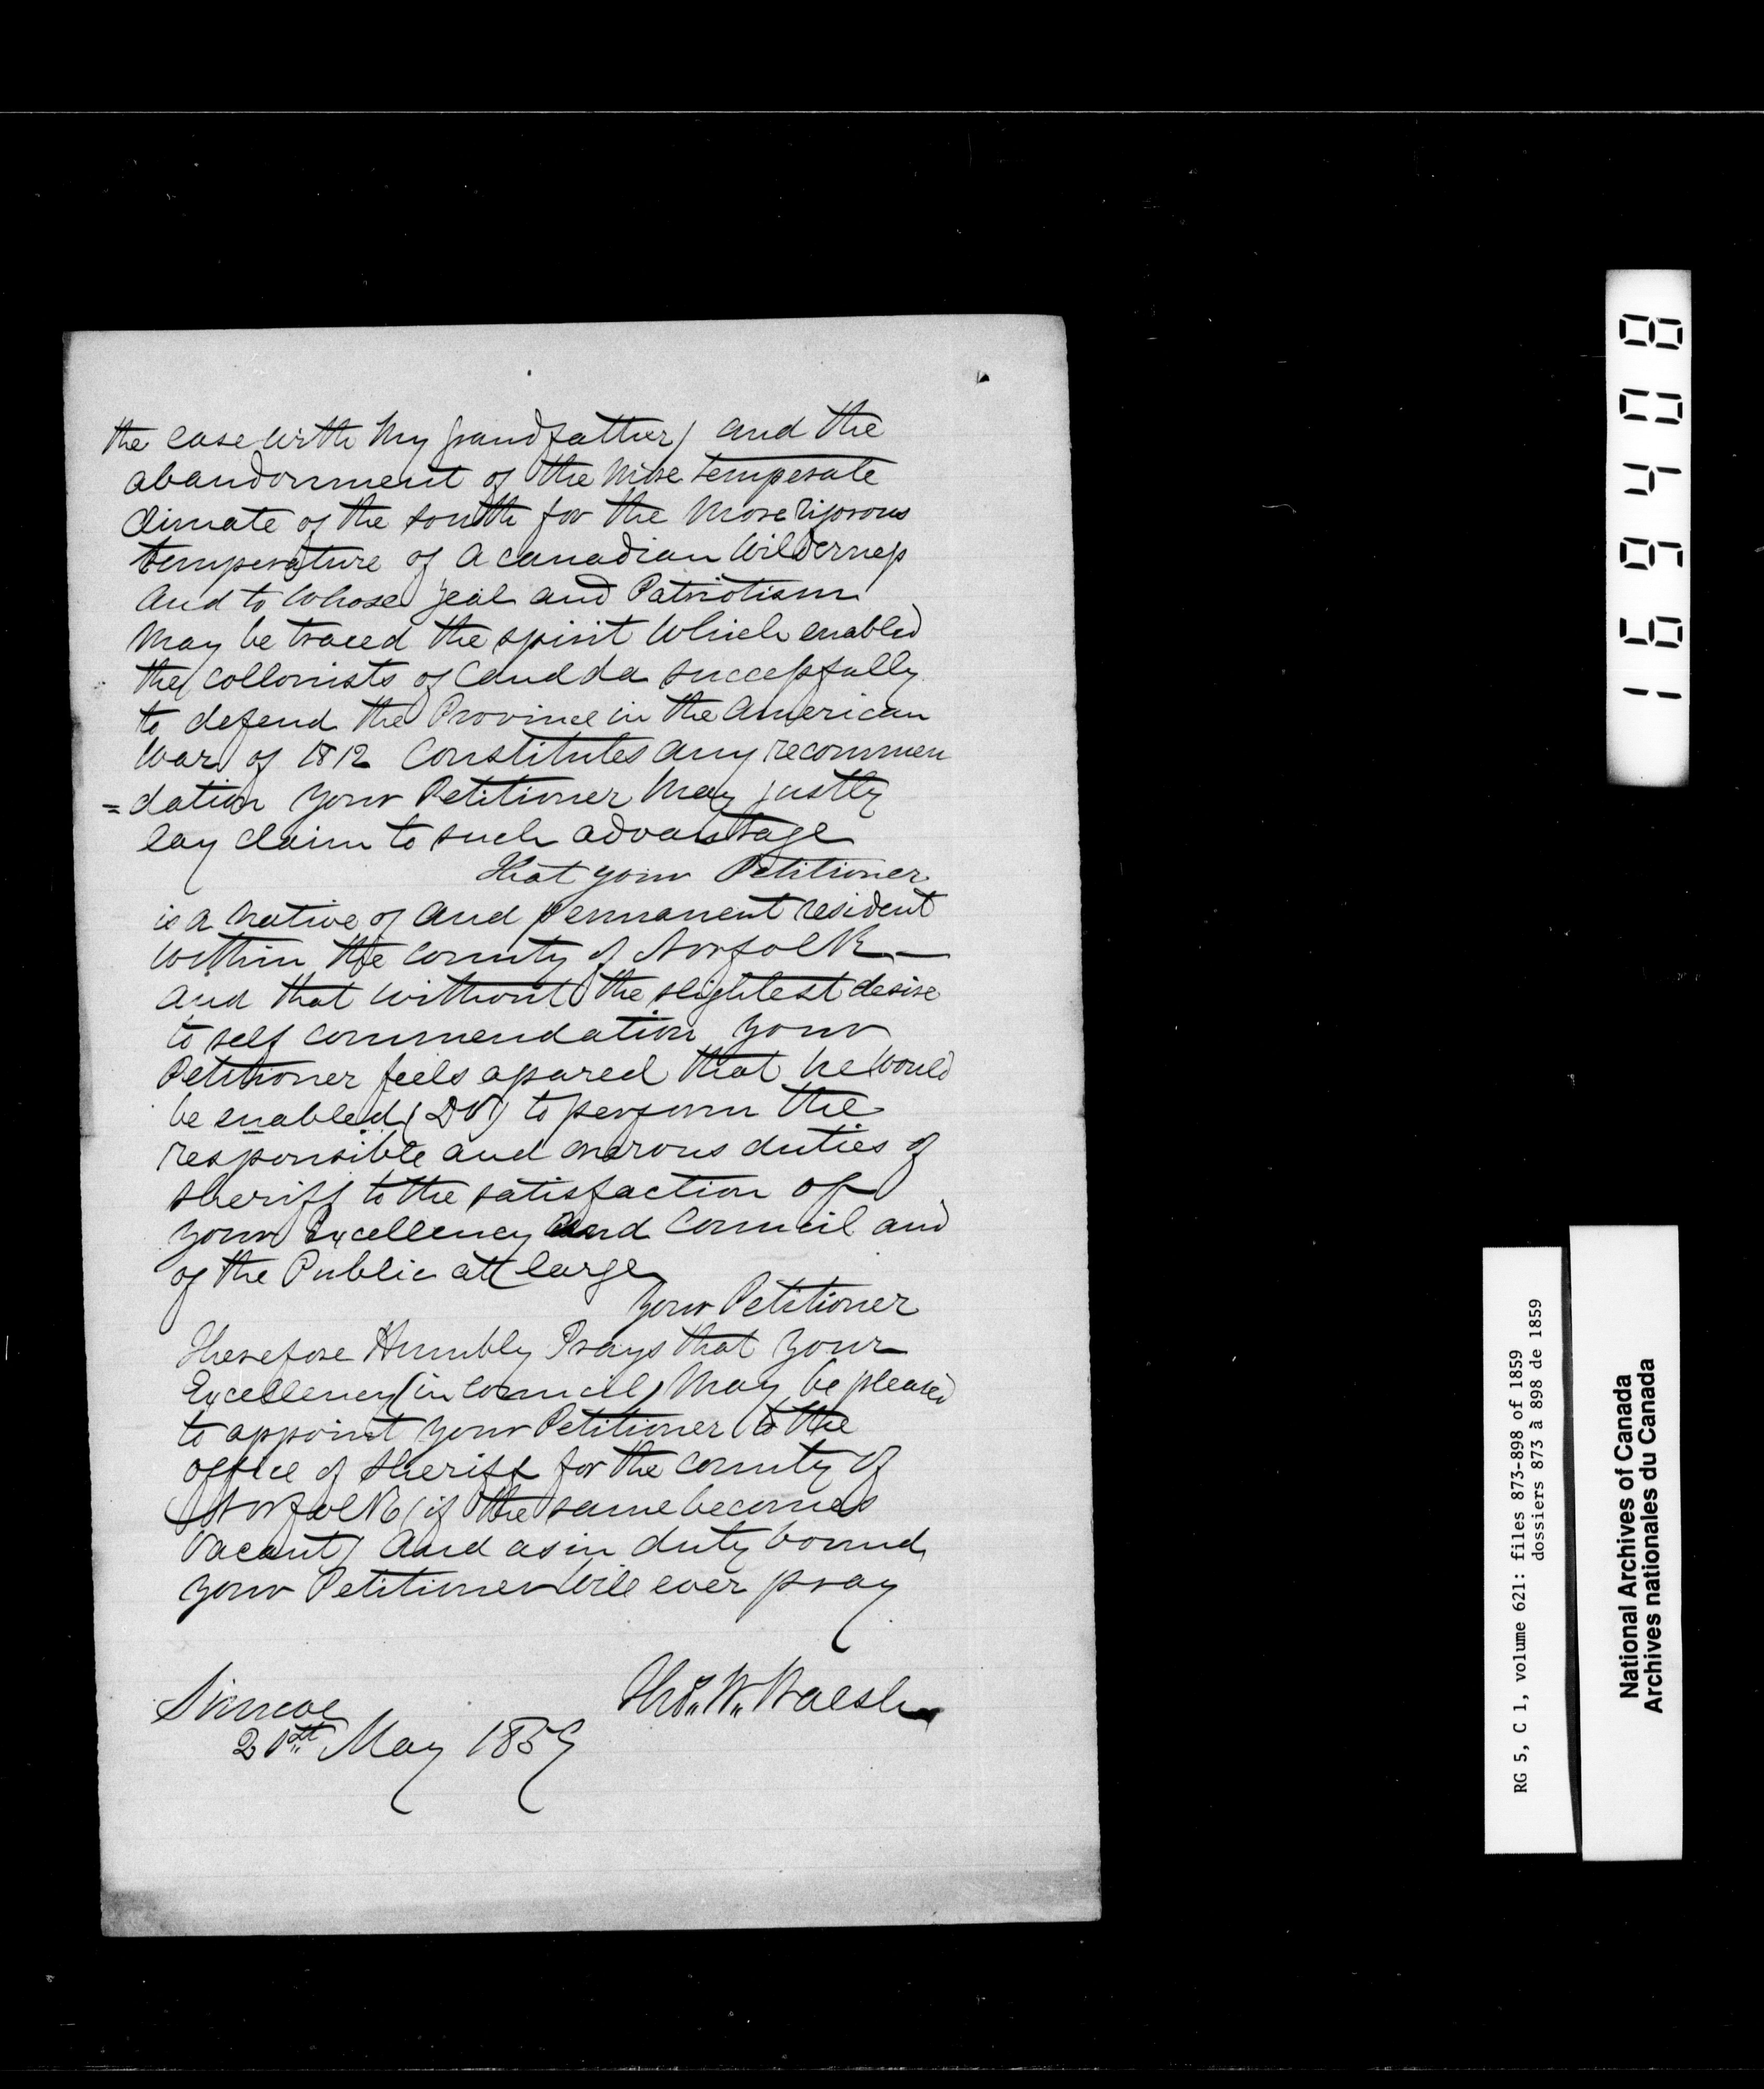 the case with my grandfather) and the
abandonment of the more temperate
climate of the south for the more rigorous
temperature of a canadian Wilderness
and to whose zeal and Patriotism
may be traced the spirit which enabled
the collonists of Canada successfully
to defend the Province in the American
War of 1812 Constitutes any recommen
=dation your Petitioner may justly
lay claim to such advantage
That your Petitioner
is a native of and permanent resident
within the county of Norfolk —
and that without the slightest desire
to self commendation your
Petitioner feels assured that he would
be enabled (DV) to perform the
responsible and onerous duties of
sheriff to the satisfaction of
your Excellency and Council and
of the Public att large
Your Petitioner
Therefore Humbly Prays that your
Excellency (in Council) may be pleased
to appoint your Petitioner to the
office of Sheriff for the county of
Norfolk (if the same becomes
vacant) And as in duty bound
your Petitioner will ever pray
Thos. W. Walsh
Simcoe
May 1859
169408
RG 5, C 1, volume 621: files 873-898 of 1859
dossiers 873 à 898 de 1859
National Archives of Canada
Archives nationales du Canada